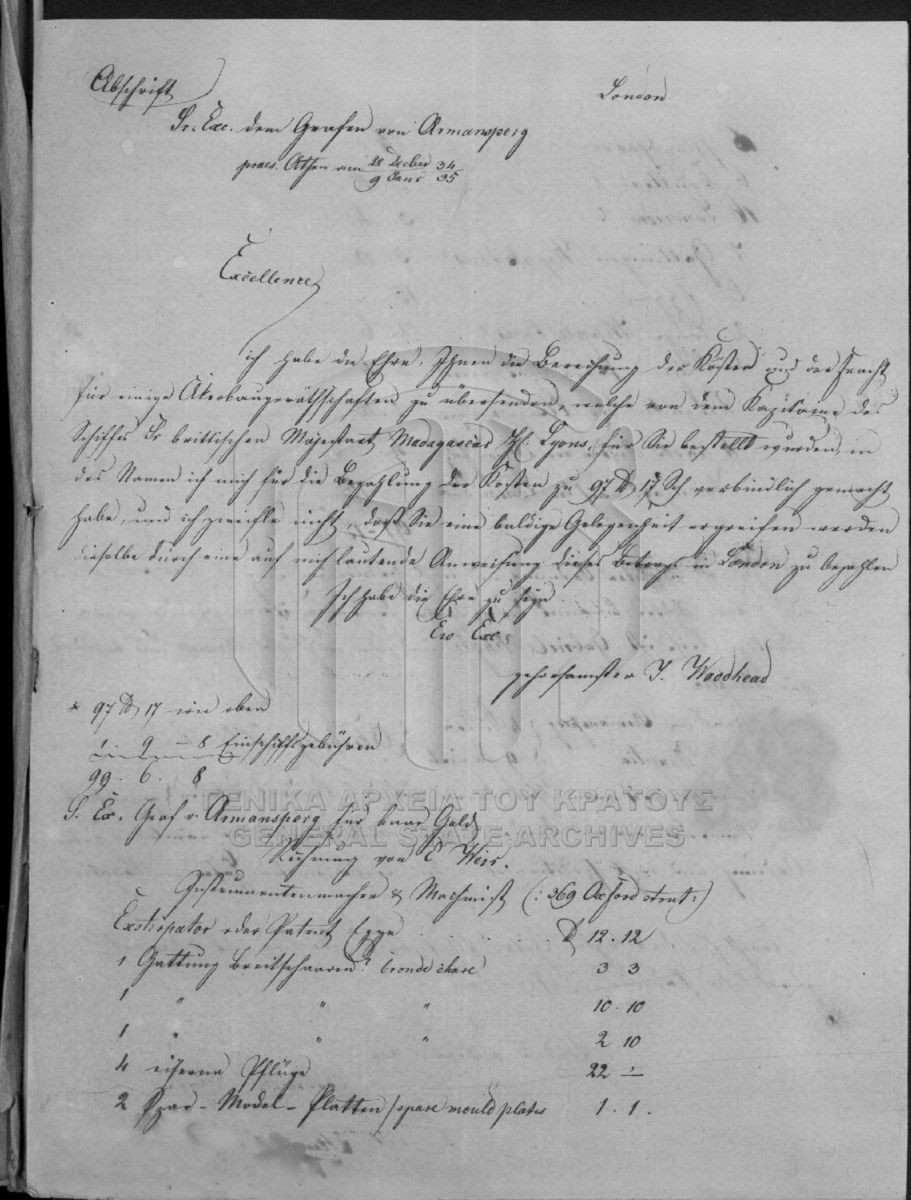 Abschrift
London
Sr. Exc. dem Grafen von Armansperg
praes. Athen am 28 Dcber 34
9 Janr 35
Excellence,
ich habe die Ehre, Ihnen die Berechnung der Kosten und der Fracht
für einige Akerbaugeräthschaften zu übersenden, welche von dem Kapitaine des
Schiffes Sr brittischen Majestaet Madagascar Lyons, für Sie bestellt wurden, in
des Namen ich mich für die Bezahlung der Kosten zu 97 ₶ 17 Sch verbindlich gemacht
habe, und ich zweifle nicht, daß Sie eine baldige Gelegenheit ergreifen werden
dieselbe durch eine auf mich lautende Anweisung dieses Betrags in London zu bezahlen
Ich habe die Ehre zu seyn
Ew Exc
gehorsamster J. Woodhead
* 97 ₶ 17 wie oben
1 . 9 – 8 Einschiffsgebühren
99 . 6 . 8
S. Ex. Graf v. Armansperg für baar Geld
Rechnung von E Weir.
Instrumentenmacher & Maschinist (: 369 Oxford street :)
Exstirpator oder Patent Egge ₶ 12 . 12
1 Gattung Breitschaaren 3 3
1 " " " 10 . 10
1 " " " 2 10
4 eiserne Pflüge 22 –
2 Spar-Model-Platten / spare mould plates 1 . 1 .
ΓΕΝΙΚΑ ΑΡΧΕΙΑ ΤΟΥ ΚΡΑΤΟΥΣ
GENERAL STATE ARCHIVES